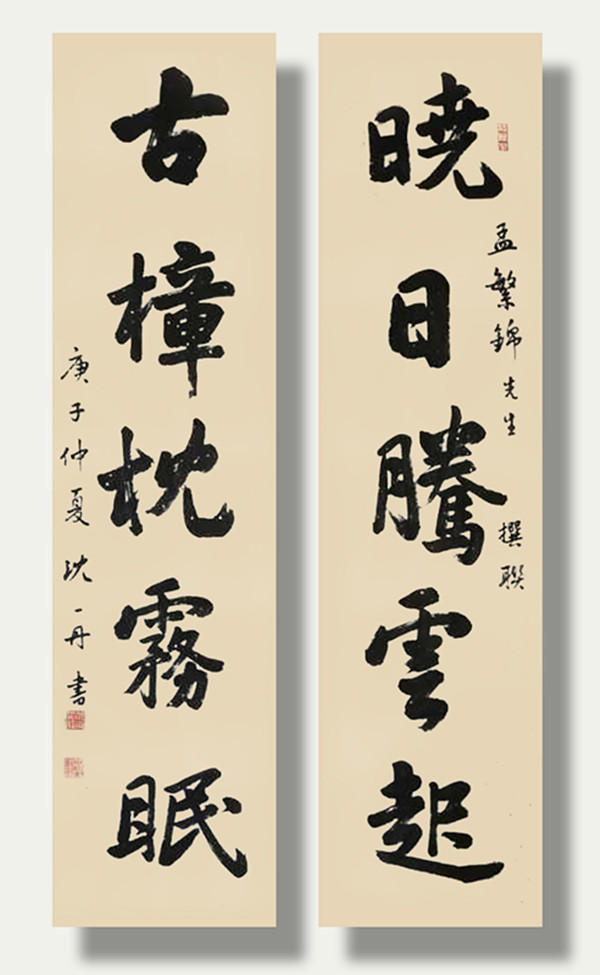 曉日騰雲起
孟繁錦先生 撰聯
古樟枕霧眠
庚子仲夏沈一丹書